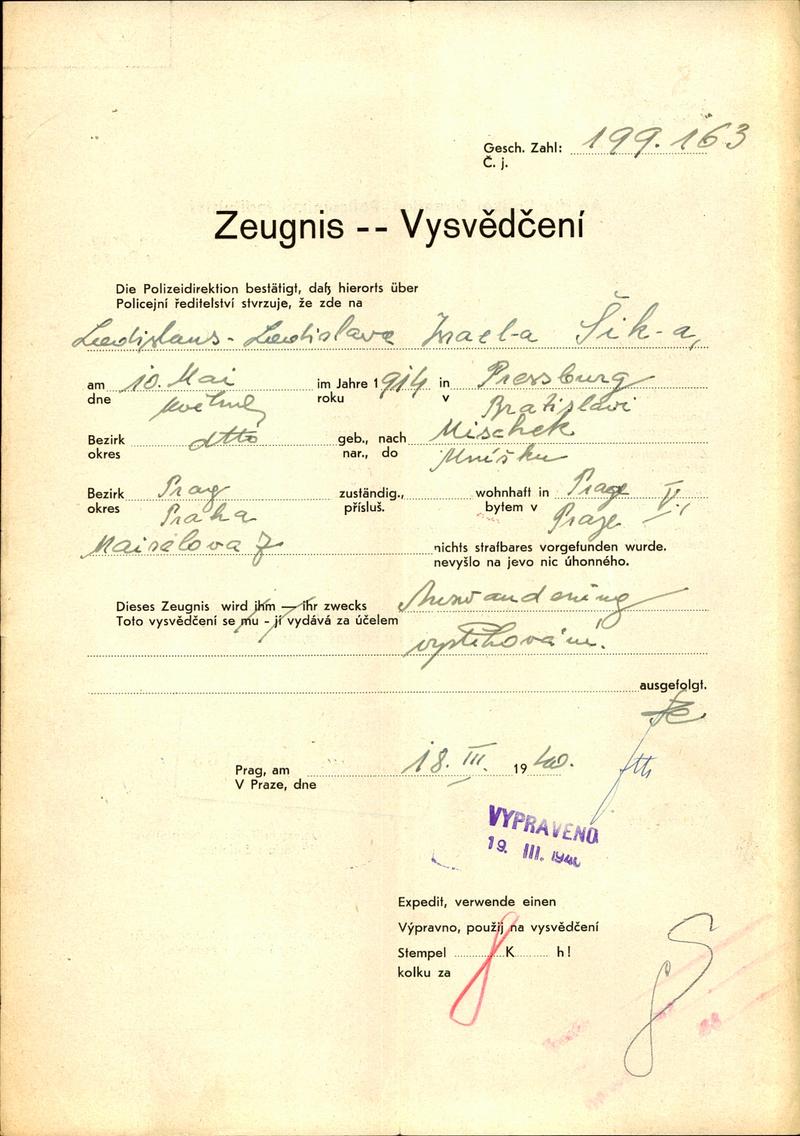 Gesch. Zahl: 199.163
Č. j.
Zeugnis -- Vysvědčení
Die Polizeidirektion bestätigt, daß hierorts über
Policejní ředitelství stvrzuje, že zde na
Ladislaus - Ladislava Israel-a Šik-a,
am 10. Mai im Jahre 1914 in Pressburg
dne května roku v Bratislavi
Bezirk dtto geb., nach Mischek
okres nar., do Mníšku
Bezirk Prag zuständig., wohnhaft in Prag V.,
okres Praha přísluš. bytem v Praze
Maiselova 7 nichts strafbares vorgefunden wurde.
nevyšlo na jevo nic úhonného.
Dieses Zeugnis wird ihm — ihr zwecks Auswanderung
Toto vysvědčení se mu - jí vydává za účelem
vystěhování.
ausgefolgt.
Prag, am 18. III. 1940.
V Praze, dne
VYPRAVENO
19. III. 1940
Expedit, verwende einen
Výpravno, použij na vysvědčení
Stempel K h!
kolku za